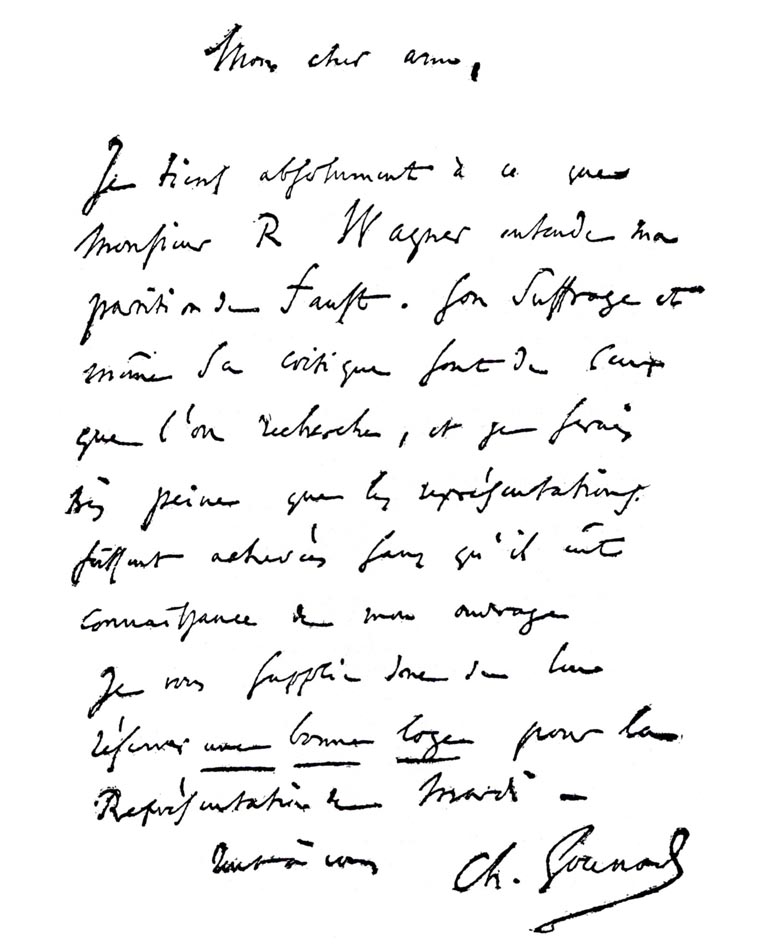 Mon cher ami,
Je tiens absolument à ce que
Monsieur R Wagner entende ma
partition de Faust. Son suffrage et
même sa critique sont de ceux
que l'on recherche, et je serais
très peiné que les représentations
fussent achevées sans qu'il eût
connaissance de mon ouvrage
Je vous supplie donc de lui
réserver une bonne loge pour la
Représentation de Mardi –
tout à vous Ch. Gounod